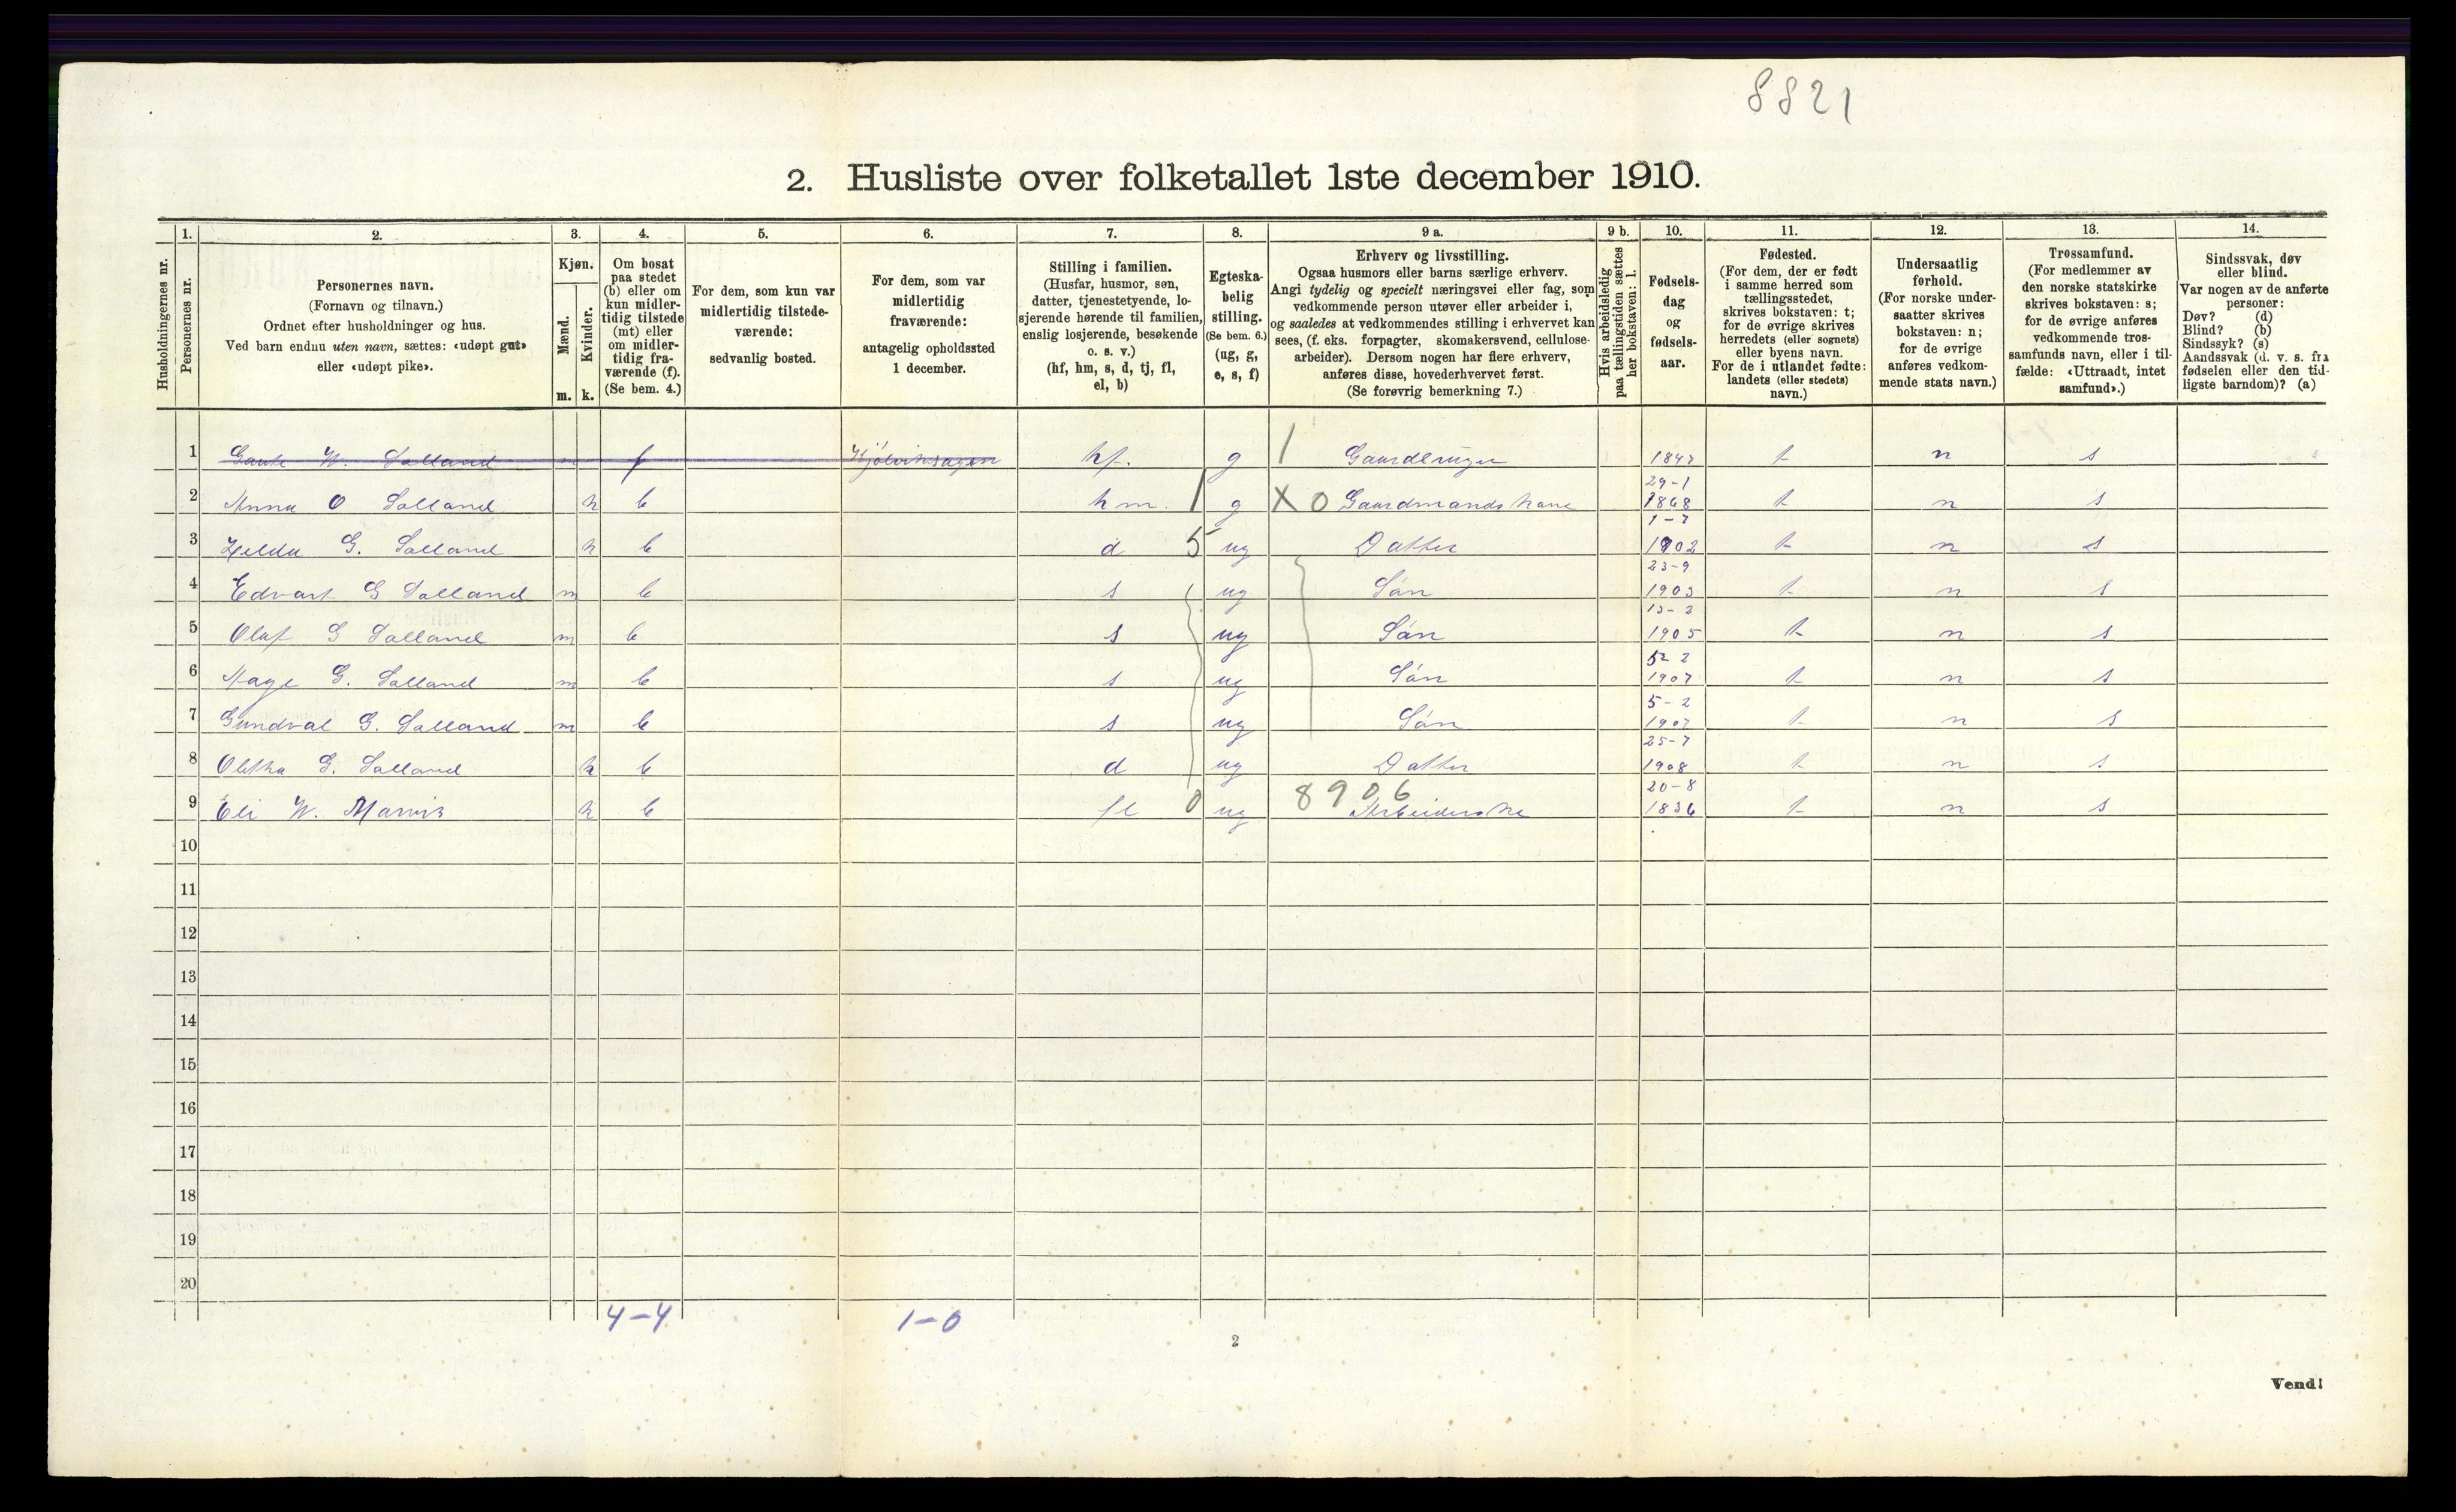 8821
2. Husliste over folketallet 1ste december 1910.
1. 2. 3. 4. 5. 6. 7. 8. 9 a. 9 b. 10. 11. 12. 13. 14.
Husholdningernes nr.
Personernes nr.
Personernes navn.
(Fornavn og tilnavn.)
Ordnet efter husholdninger og hus.
Ved barn endnu uten navn, sættes: «udøpt gut»
eller «udøpt pike».
Kjøn.
Mænd.
Kvinder.
m. k.
Om bosat
paa stedet
(b) eller om
kun midler-
tidig tilstede
(mt) eller
om midler-
tidig fra-
værende (f).
(Se bem. 4.)
For dem, som kun var
midlertidig tilstede-
værende:
sedvanlig bosted.
For dem, som var
midlertidig
fraværende:
antagelig opholdssted
1 december.
Stilling i familien.
(Husfar, husmor, søn,
datter, tjenestetyende, lo-
sjerende hørende til familien,
enslig losjerende, besøkende
o. s. v.)
(hf, hm, s, d, tj, fl,
el, b)
Egteska-
belig
stilling.
(Se bem. 6.)
(ug, g,
e, s, f)
Erhverv og livsstilling.
Ogsaa husmors eller barns særlige erhverv.
Angi tydelig og specielt næringsvei eller fag, som
vedkommende person utøver eller arbeider i,
og saaledes at vedkommendes stilling i erhvervet kan
sees, (f. eks. forpagter, skomakersvend, cellulose-
arbeider). Dersom nogen har flere erhverv,
anføres disse, hovederhvervet først.
(Se forøvrig bemerkning 7.)
Hvis arbeidsledig
paa tællingstiden sættes
her bokstaven: l.
Fødsels-
dag
og
fødsels-
aar.
Fødested.
(For dem, der er født
i samme herred som
tællingsstedet,
skrives bokstaven: t;
for de øvrige skrives
herredets (eller sognets)
eller byens navn.
For de i utlandet fødte:
landets (eller stedets)
navn.)
Undersaatlig
forhold.
(For norske under-
saatter skrives
bokstaven: n;
for de øvrige
anføres vedkom-
mende stats navn.)
Trossamfund.
(For medlemmer av
den norske statskirke
skrives bokstaven: s;
for de øvrige anføres
vedkommende tros-
samfunds navn, eller i til-
fælde: «Uttraadt, intet
samfund».)
Sindssvak, døv
eller blind.
Var nogen av de anførte
personer:
Døv? (d)
Blind? (b)
Sindssyk? (s)
Aandssvak (d. v. s. fra
fødselen eller den tid-
ligste barndom)? (a)
1 W. Salland m f hf. g 1 1847 t n s
2 Anna O Salland k b hm. 1 g X 0 Gaardmands kone 29-1 1868 t n s
3 G. Salland k b d 5 ug Datter 1-7 1902 t n s
4 Edvart G Salland m b s ug Søn 23-9 1903 t n s
5 Olaf G Salland m b s ug Søn 1905 t n s
6 Aage G. Salland m b s ug Søn 1907 t n s
7 Gundval G. Salland m b s ug Søn 5-2 1907 t n s
8 G. Salland k b d ug Datter 25-7 1908 t n s
9 Eli W. k b fl 0 ug 8906 Arbeiderske 20-8 1836 t n s
10
11
12
13
14
15
16
17
18
19
20
4-4 1-0
2
Vend!